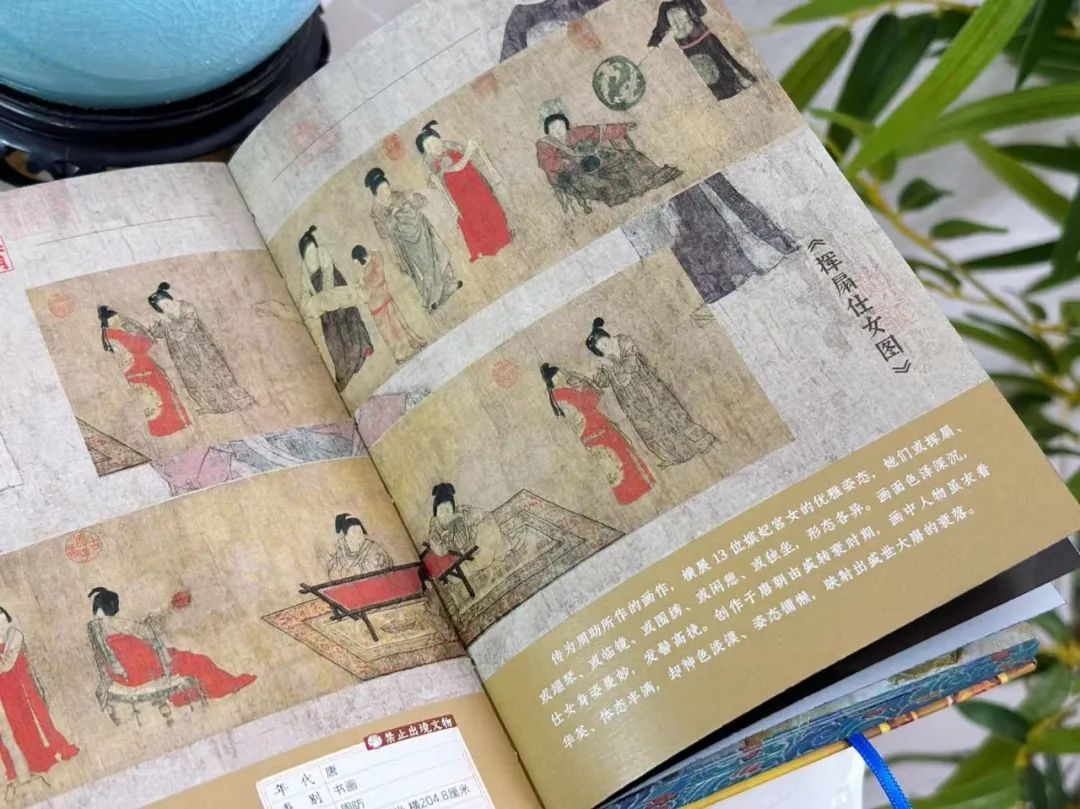 禁止出境文物
年 代 唐
类 别 书画
周昉
横204.8厘米
《挥扇仕女图》
传为周昉所作的画作，横展13位嫔妃宫女的优雅姿态，她们或挥扇、
或端琴、或临镜、或围绣、或闲憩、或独坐，形态各异。画面色泽深沉，
仕女身姿曼妙，发髻高挽。创作于唐朝由盛转衰时期，画中人物虽衣着
华美、体态丰满，却神色淡漠、姿态慵懒，映射出盛世大唐的衰落。